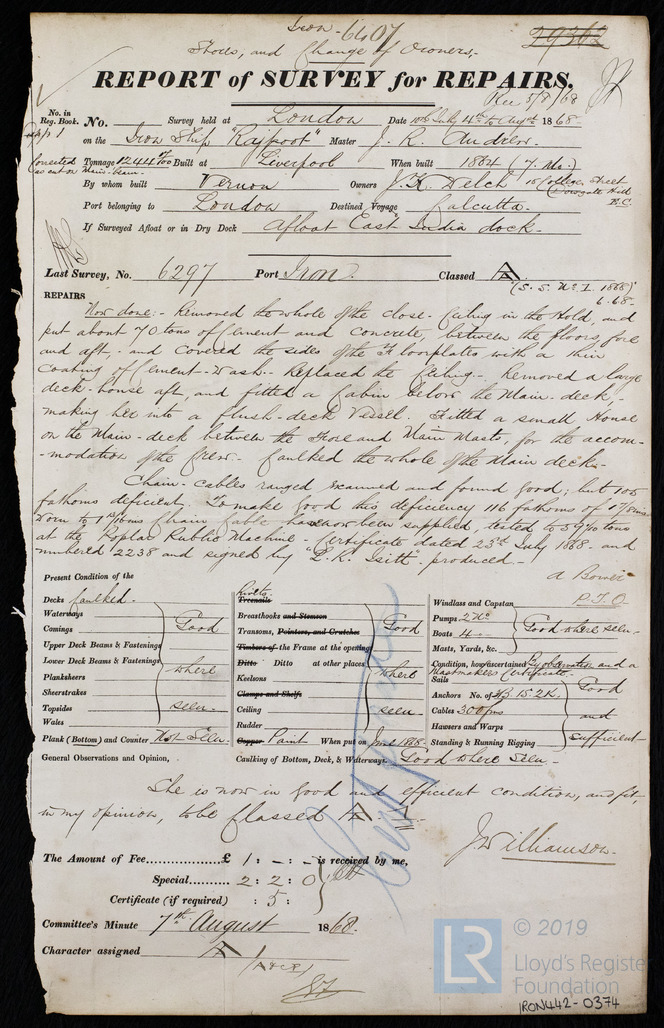 Iron 6407
29362
Shoes, and Change of Owners,
REPORT of SURVEY for REPAIRS.
Rec 5/8/68
No. in Reg. Book. No. Survey held at London Date 10th July 4th to Augst 1868
on the Iron Ship "Rajpoot" Master J. R. Andrew
Tonnage 1244 Built at Liverpool When built 1864 (7. Mo.)
By whom built Vernon Owners 15 College Street Dowgate Hill E.C.
Port belonging to London Destined Voyage Calcutta.
If Surveyed Afloat or in Dry Dock Afloat East India dock.
Last Survey, No. 6297 Port Iron Classed A
(S. S. No. I. 1868)
6.68.
REPAIRS
Now done:- Removed the whole of the close-Ceiling in the Hold, and
put about 70 tons of Cement and Concrete, between the floors, fore
and aft,- and covered the sides of the Floorplates with a thin
coating of Cement-wash. Replaced the Ceiling. Removed a large
deck-house aft, and fitted a Cabin below the Main-deck,-
making her into a flush-deck Vessel. Fitted a small House
on the Main-deck between the Fore and Main Masts, for the accom-
-modation of the Crew. Caulked the whole of the Main deck.
Chain-cables ranged examined and found good; but 105
fathoms deficient. To make good this deficiency 116 fathoms of 1 7/8 ins
worn to Chain Cable has now been supplied, tested to tons
at the Poplar Public Machine. Certificate dated 23d July 1868. and
numbered 2238 and signed by "L. R. Isitt" produced.
P.T.O
Present Condition of the
Decks Caulked.
Waterways
Comings
Upper Deck Beams & Fastenings
Lower Deck Beams & Fastenings
Planksheers
Sheerstrakes
Topsides
Wales
Good where seen.
Plank (Bottom) and Counter Not Seen.
Rivets
Treenails
Breasthooks and Stemson
Transoms, Pointers, and Crutches
Timbers of the Frame at the opening
Ditto Ditto at other places
Keelsons
Clamps and Shelfs
Ceiling
Rudder
Good where seen.
Copper Paint When put on June 1868.
Windlass and Capstan
Pumps 2 No
Boats 4
Masts, Yards, &c.
Good where seen.
Condition, how ascertained By observation and a
Mastmakers Certificate.
Sails
Anchors No. of 3B. 1S. 2K.
Cables 300 fms
Hawsers and Warps
Standing & Running Rigging
Good and sufficient
General Observations and Opinion, Caulking of Bottom, Deck, & Waterways. Good where seen.
She is now in good and efficient condition, and fit,
in my opinion, to be Classed A 1.
J Williamson.
The Amount of Fee £ 1 : - : - is received by me,
Special 2 : 2 : 0
Certificate (if required) : 5 :
Committee's Minute 7th August 1868.
Character assigned A 1
(A & C P)
© 2019
LR
Lloyd's Register
Foundation
IRON442-0374